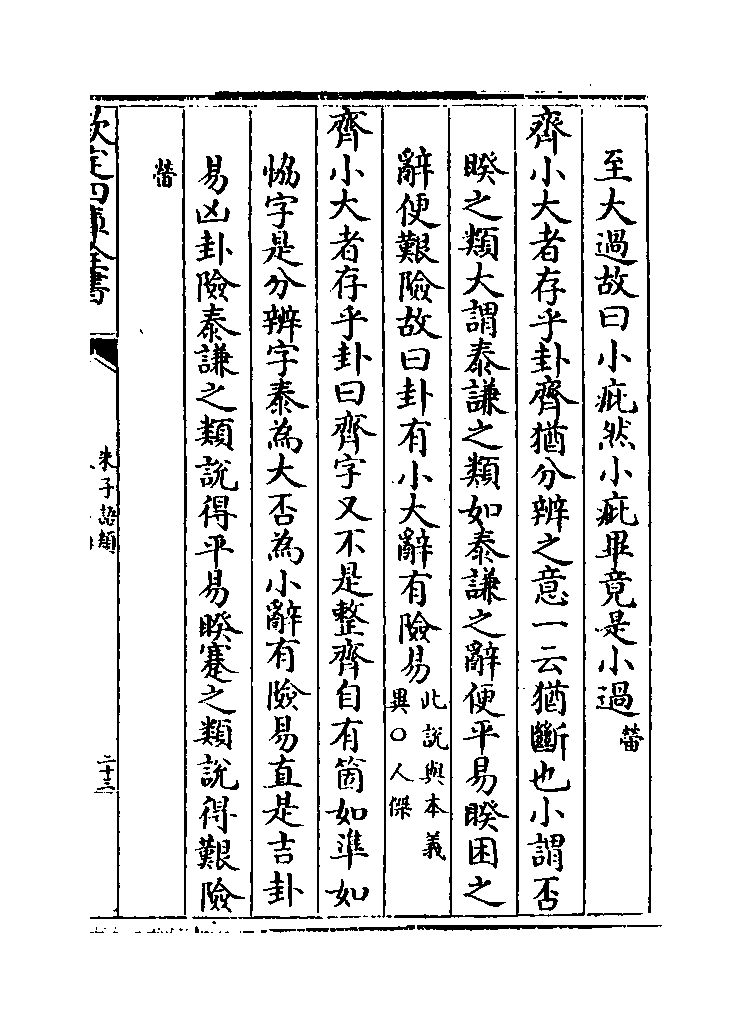 至大過故曰小疵然小疵畢竟是小過㽦
齊小大者存乎卦齊猶分辨之意一云猶斷也小謂否
睽之類大謂泰謙之類如泰謙之辭便平易睽困之
辭便艱險故曰卦有小大辭有險易此說與本義
異○人傑
齊小大者存乎卦曰齊字又不是整齊自有箇如準如
恊字是分辨字泰為大否為小辭有險易直是吉卦
易凶卦險泰謙之類說得平易睽蹇之類說得艱險
㽦
欽定四庫全書
朱子語類
二十三